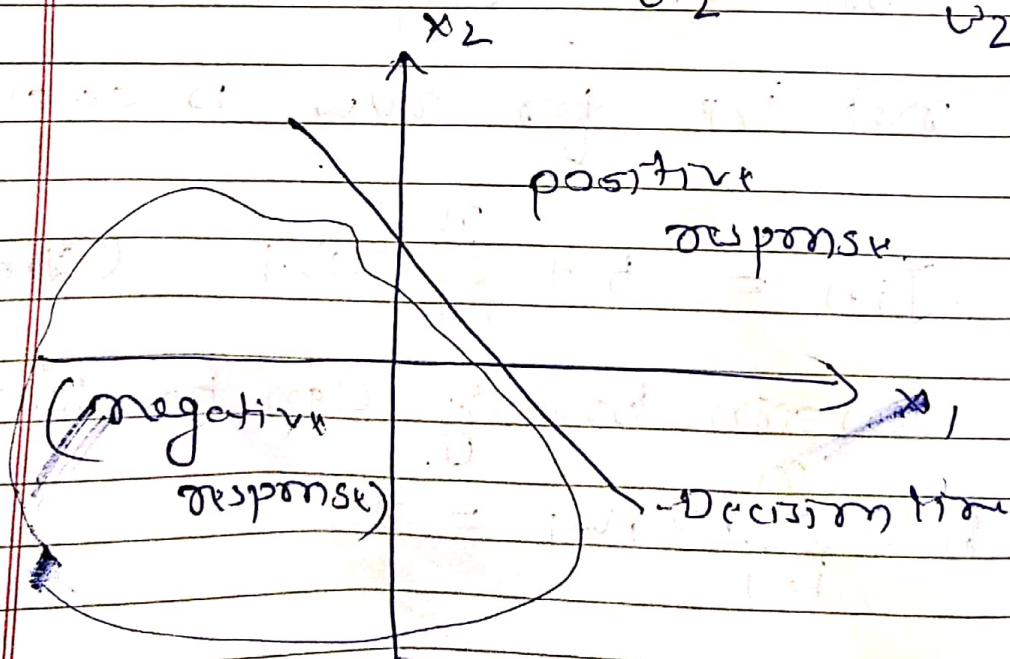 x2
positive
response.
(negative
x1
response)
Decision line